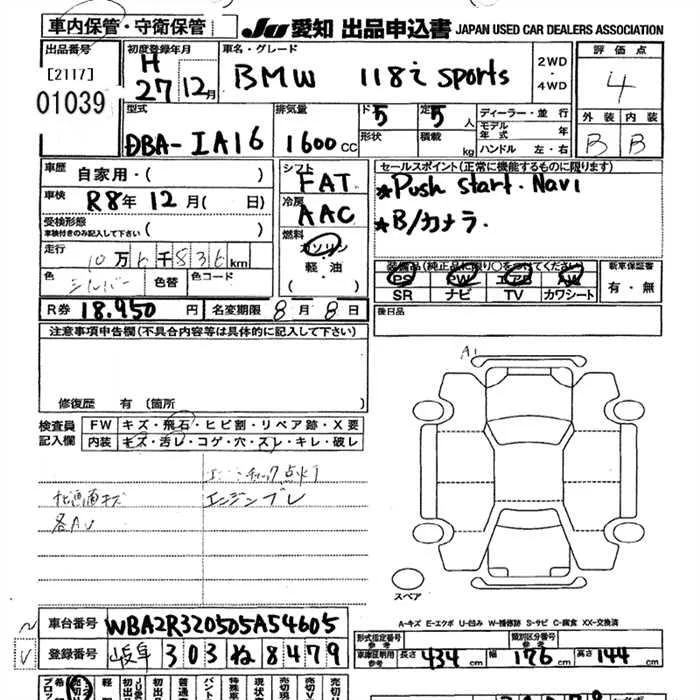 車内保管・守衛保管
JU 愛知 出品申込書 JAPAN USED CAR DEALERS ASSOCIATION
出品番号
[2117]
01039
初度登録年月
H
27 12月
車名・グレード
BMW 118i sports
2WD
・
4WD
評価点
4
型式
DBA-1A16
排気量
1600 CC
ド
5
形状
定
5 人
積載
kg
ディーラー・並行
モデル年式 年
ハンドル 左・右
外装 内装
B B
車歴
自家用・( )
車検
R8年12月( 日)
受検形態
車検付きのみ記入して下さい
( )
走行
10万6千836km
色
シルバー
色替
色コード
シフト
FAT
冷房
AAC
燃料
ガソリン
軽・油
( )
セールスポイント(正常に機能するものに限ります)
★Push start. Navi
★B/カメラ.
装備品(純正品に限り○をつけてください)
PS PW エアB AW
SR ナビ TV カワシート
新車保証書
有・無
R券 18.950 円
名変期限 8月8日
後日品
注意事項申告欄(不具合内容等は具体的に記入して下さい)
修復歴 有 (箇所 )
検査員
記入欄
FW キズ・飛石・ヒビ割・リペア跡・X要
内装 キズ・汚レ・コゲ・穴・スレ・キレ・破レ
エンジンチェック点灯
エンジンブレ
各AU
A1
スペア
A-キズ E-エクボ U-凹み W-補修跡 S-サビ C-腐食 XX-交換済
車台番号 WBA2R320505A54605
登録番号 岐阜 303 ね 8479
形式指定番号
参考
類別区分番号
参考
車庫証明用
参考
長さ 434 cm
幅 176 cm
高さ 144 cm